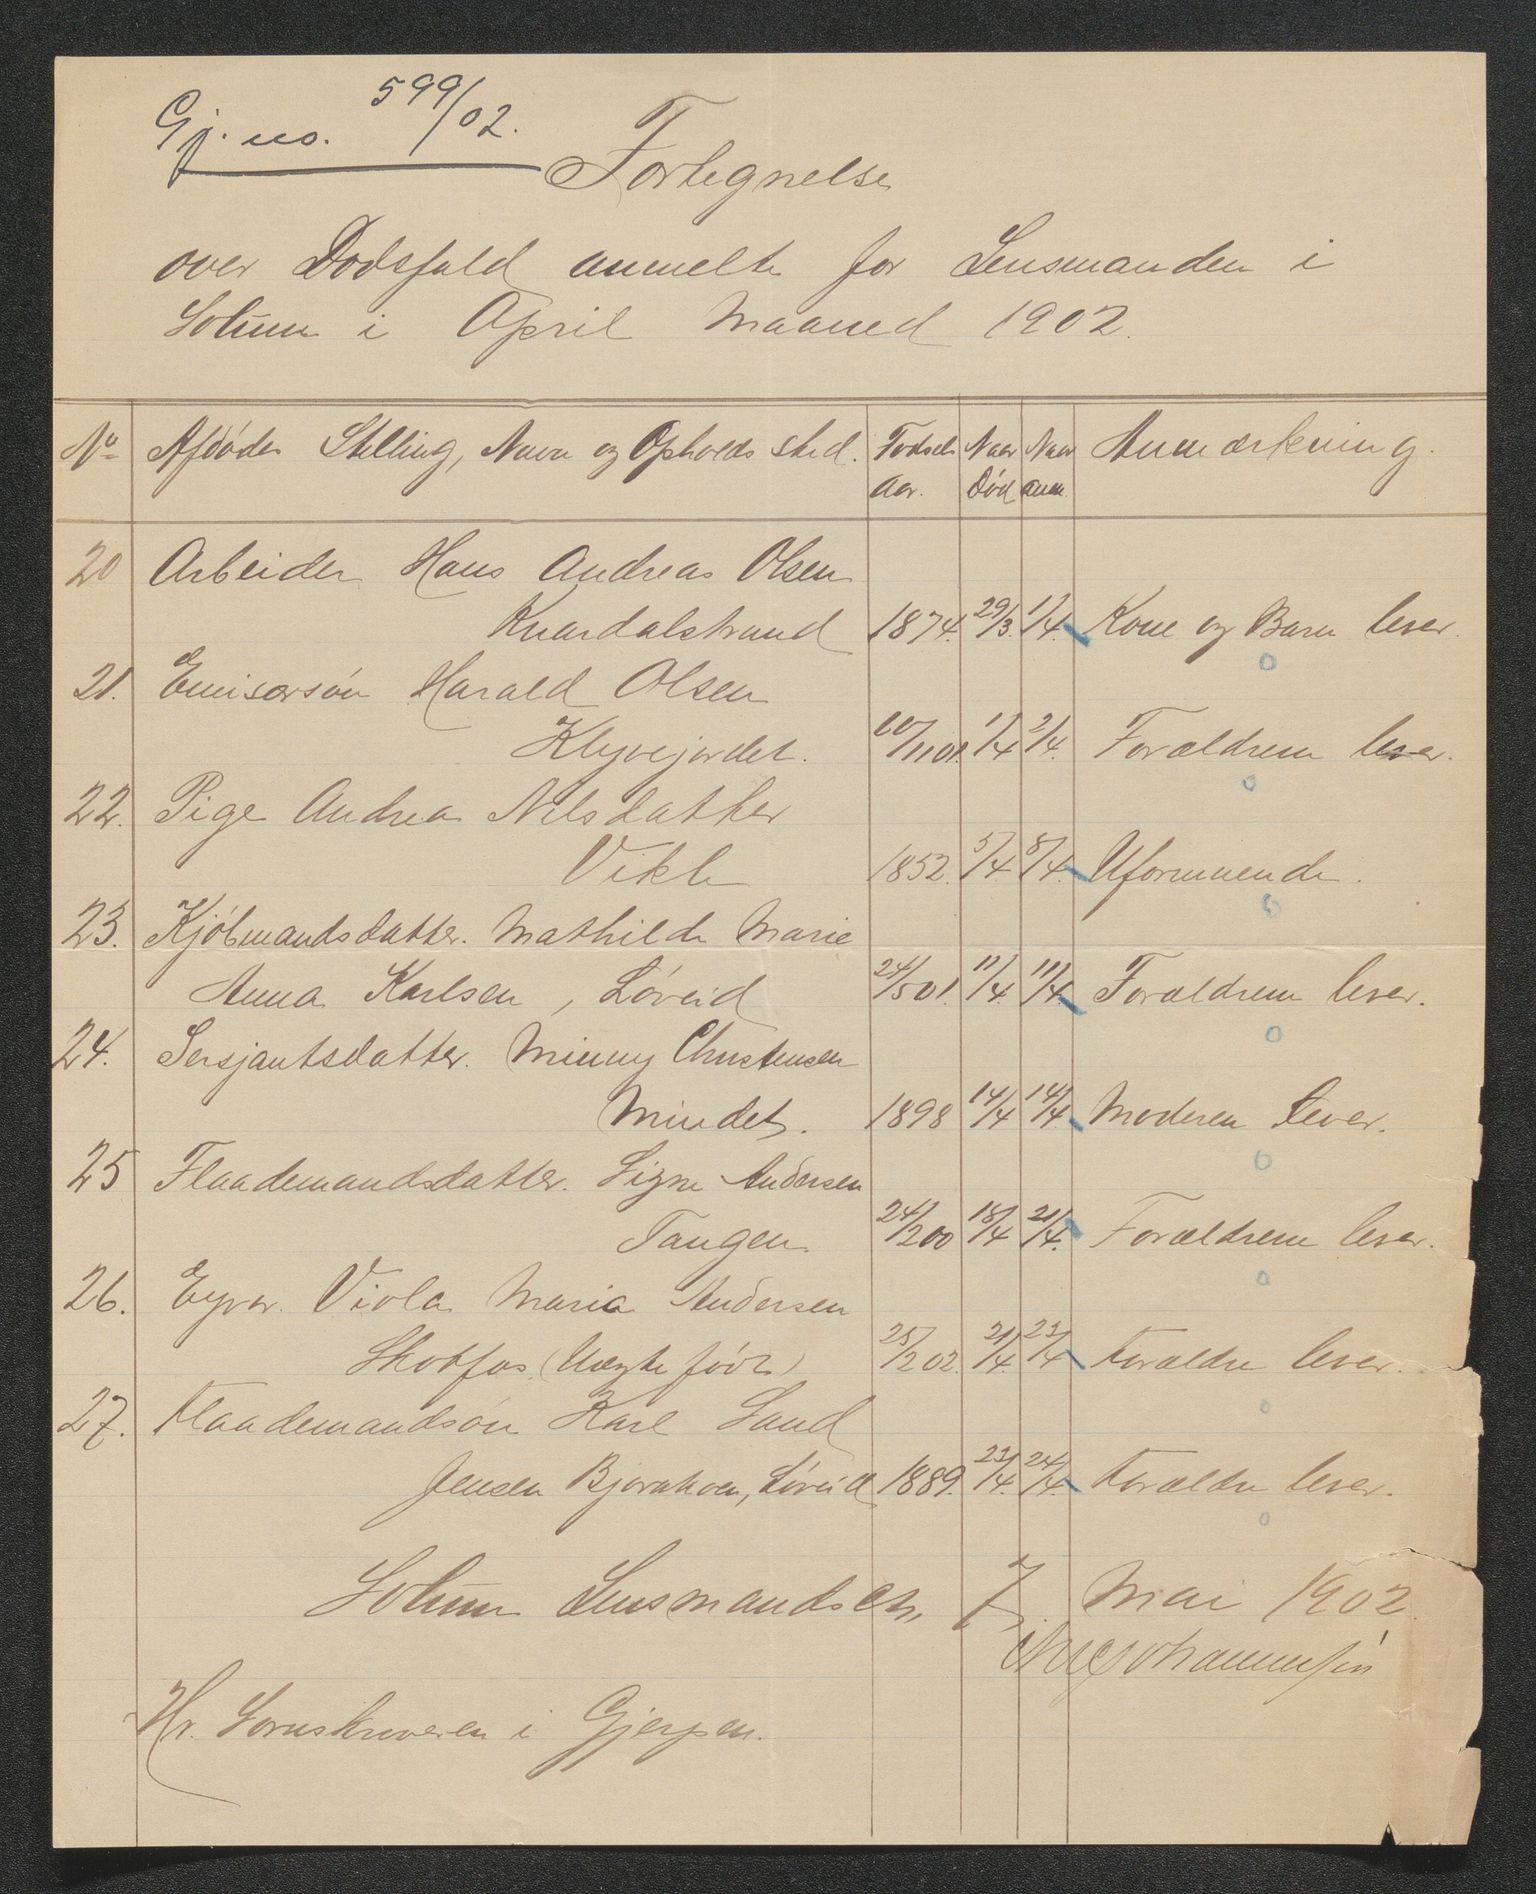 Gj. no. 599/02.
Fortegnelse
over Dødsfald anmeldte for Lensmanden i
Solum i April Maaned 1902.
No Afdødes Stilling, Navn og Opholdssted. Fødsels Aar. Naar Død Naar anm. Anmærkning.
20 Arbeider Hans Andreas Olsen
Knardalstrand 1874. 29/3. 1/4. Kone og Barn lever.
21. Harald Olsen
Klyvejordet. 1/4 2/4. Forældrene lever.
22. Pige Andrea Nilsdatter
1852. 5/4. 8/4. Uformuende.
23. Kjøbmandsdatter. Mathilde Marie
Anna Karlsen, Løveid 24/501. 11/4. 11/4. Forældrene lever.
24. Sersjantsdatter. Minny Christensen
Mindet. 1898 14/4 14/4. Moderen lever.
25 Flaademandsdatter. Signe Andersen
Tangen. 24/200 18/4 21/4. Forældrene lever.
26. Viola Maria Andersen
Skotfos. (Uægte født) 25/202. 21/4. 23/4 Forældre lever.
27. Flaademandsøn Karl Sand
Jensen Løveid 1889. 23/4. 24/4. Forældre lever.
Solum Lensmandsktr. 7. Mai 1902.
Hr. Sorenskriveren i Gjerpen.